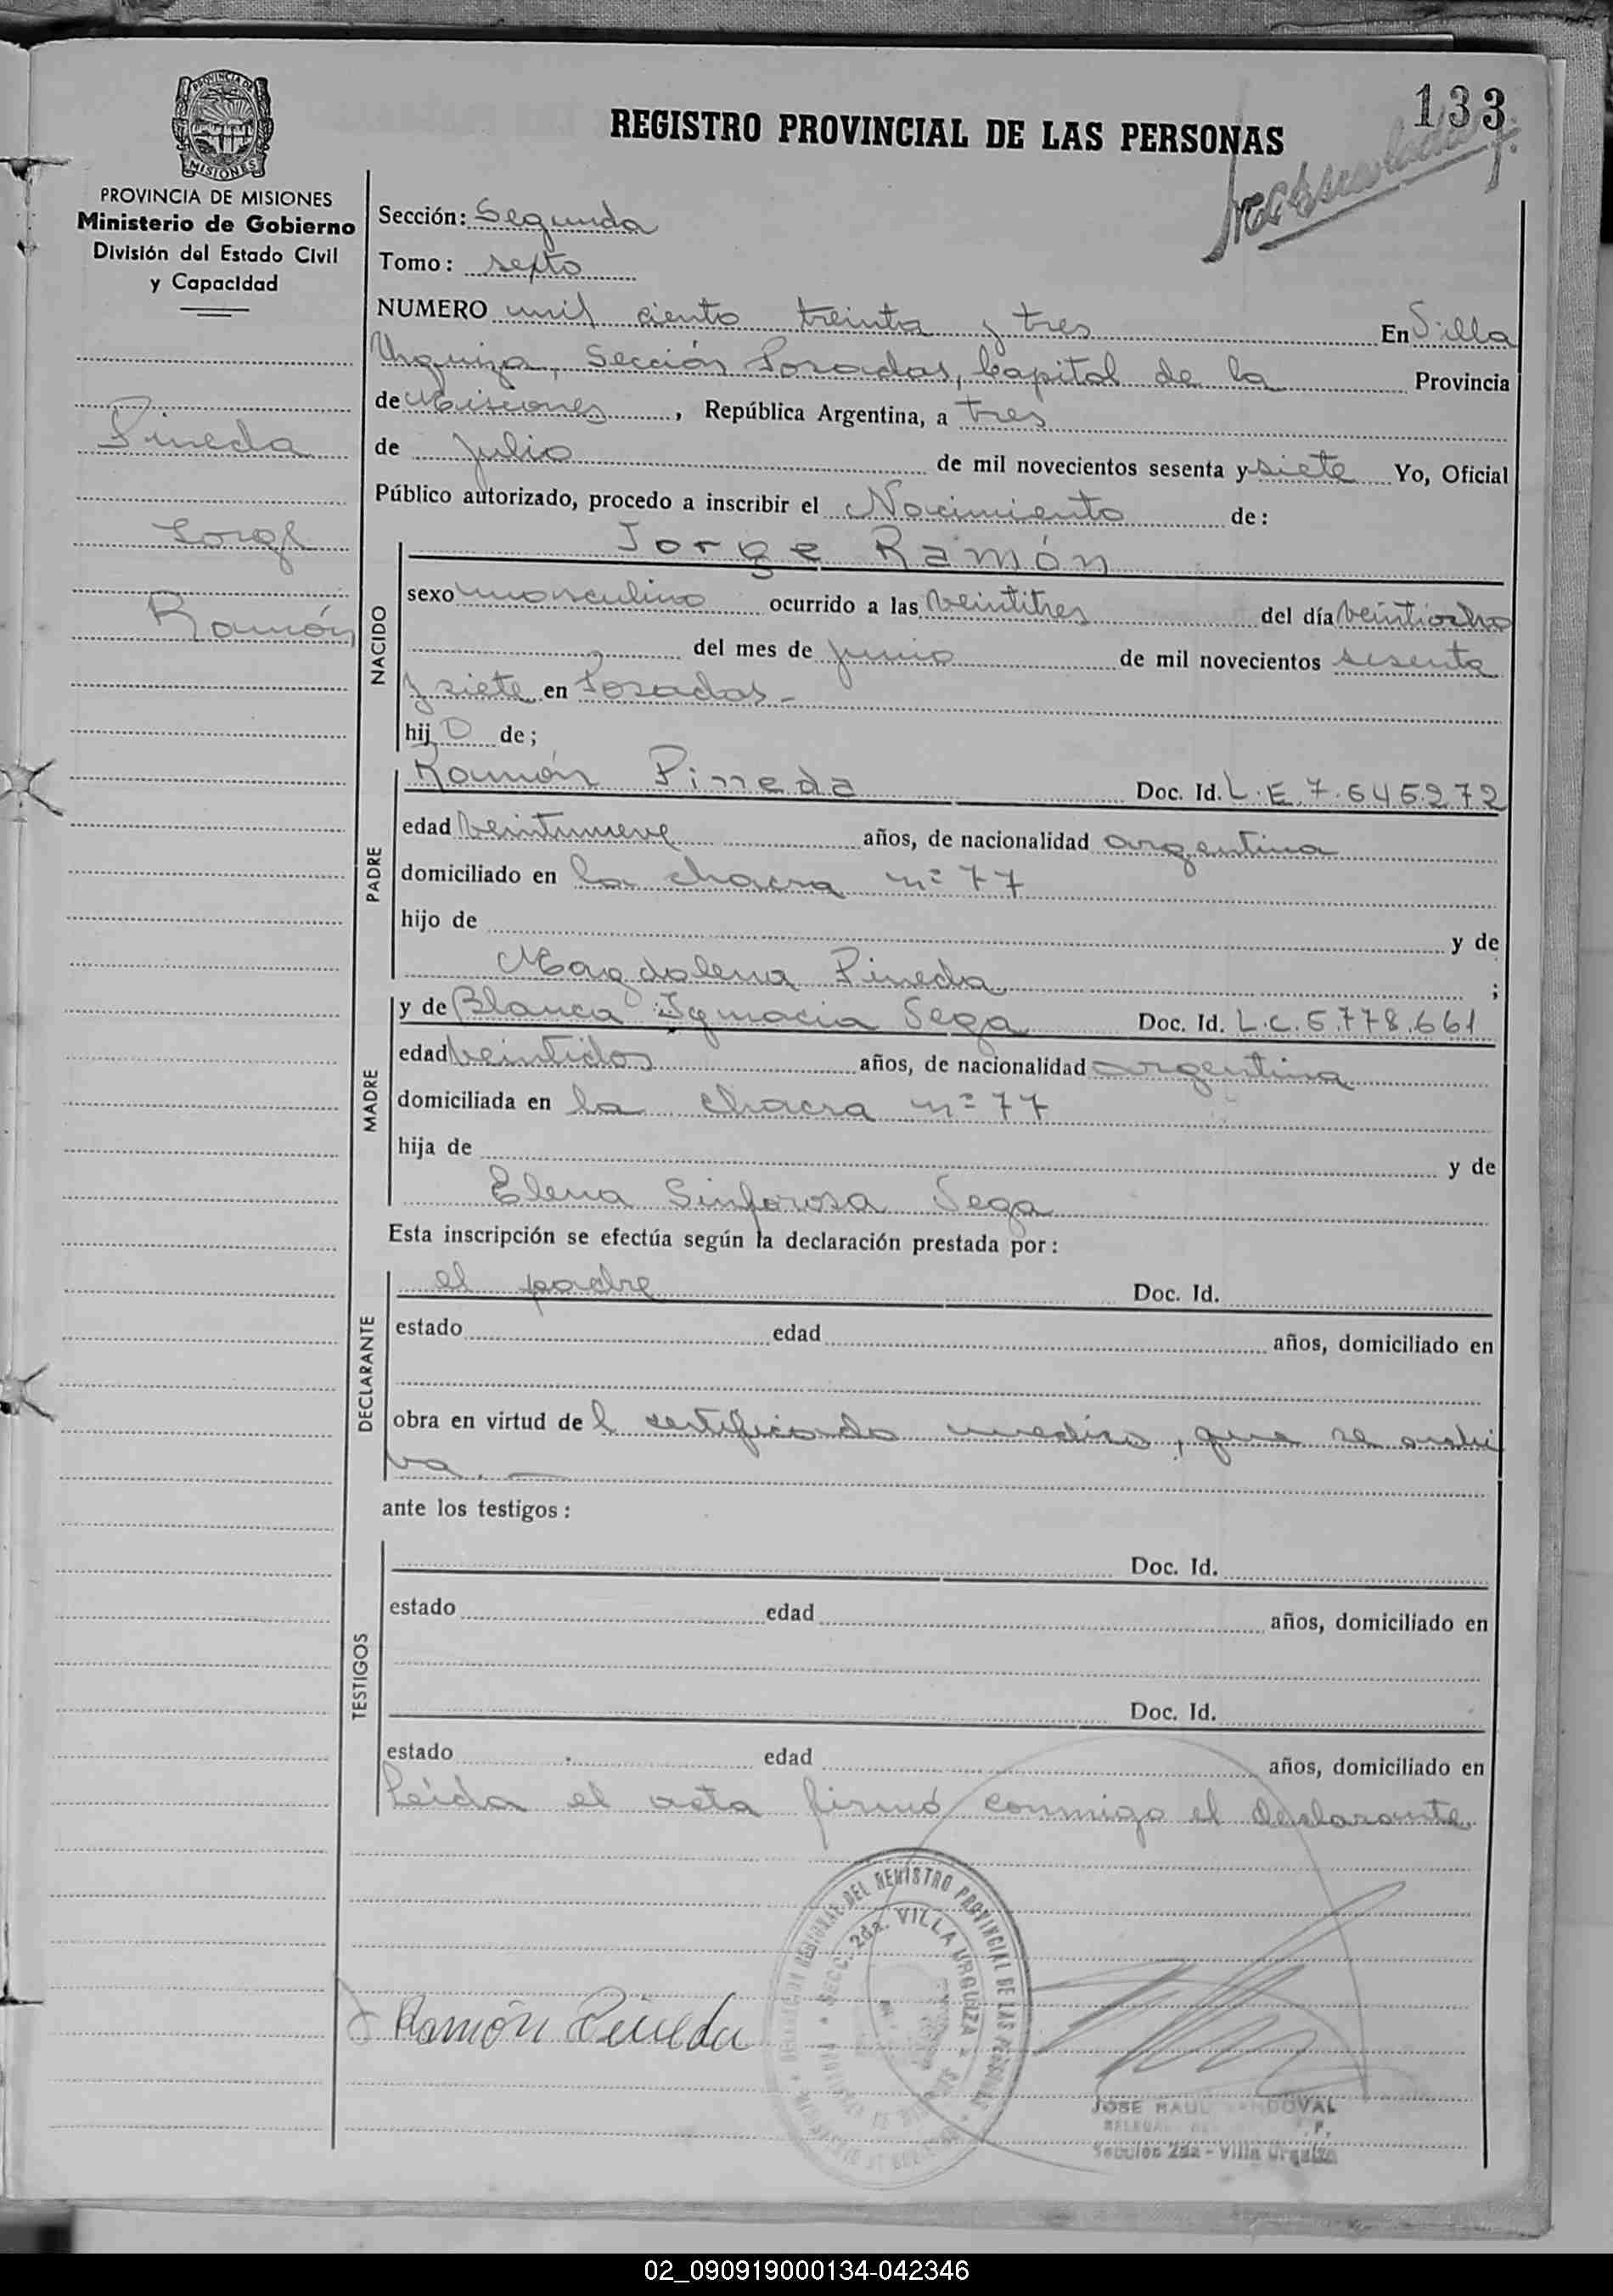 133
REGISTRO PROVINCIAL DE LAS PERSONAS
PROVINCIA DE MISIONES
MISIONES
PROVINCIA DE MISIONES
Ministerio de Gobierno
División del Estado Civil
y Capacidad
Pineda
Jorge
Ramón
Sección: Segunda
Tomo: sexto
NUMERO mil ciento treinta y tres En Villa
Urquiza, Sección Posadas, Capital de la Provincia
de Misiones, República Argentina, a tres
de julio de mil novecientos sesenta y siete Yo, Oficial
Público autorizado, procedo a inscribir el Nacimiento de:
Jorge Ramón
NACIDO
sexo masculino ocurrido a las veintitres del día veintiocho
del mes de junio de mil novecientos sesenta
y siete en Posadas.-
hijo de;
PADRE
Ramón Pineda Doc. Id. L.E. 7.645272
edad veintinueve años, de nacionalidad argentina
domiciliado en la chacra nº 77
hijo de y de
Magdalena Pineda ;
MADRE
y de Blanca Ignacia Sega Doc. Id. L.C. 5.778.661
edad veintidos años, de nacionalidad argentina
domiciliada en la chacra nº 77
hija de y de
Elena Sinforosa Sega
Esta inscripción se efectúa según la declaración prestada por:
DECLARANTE
el padre Doc. Id.
estado edad años, domiciliado en
obra en virtud del certificado medico, que se archi
va.-
ante los testigos:
TESTIGOS
Doc. Id.
estado edad años, domiciliado en
Doc. Id.
estado edad años, domiciliado en
Leida el acta firmó conmigo el declarante
DEL REGISTRO PROVINCIAL DE LAS PERSONAS
SECC. 2da. VILLA URQUIZA
Ramón Pineda
JOSE RAUL SANDOVAL
Sección 2da - Villa Urquiza
02_090919000134-042346